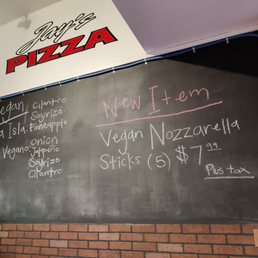 Jay's
PIZZA
egan Cilantro
a Isla: Soyrizo
Pineapple
Vegano: onion
Jalapeño
Soyrizo
Cilantro
New Item
Vegan Nozzarella
Sticks (5) $7.99
Plus tax